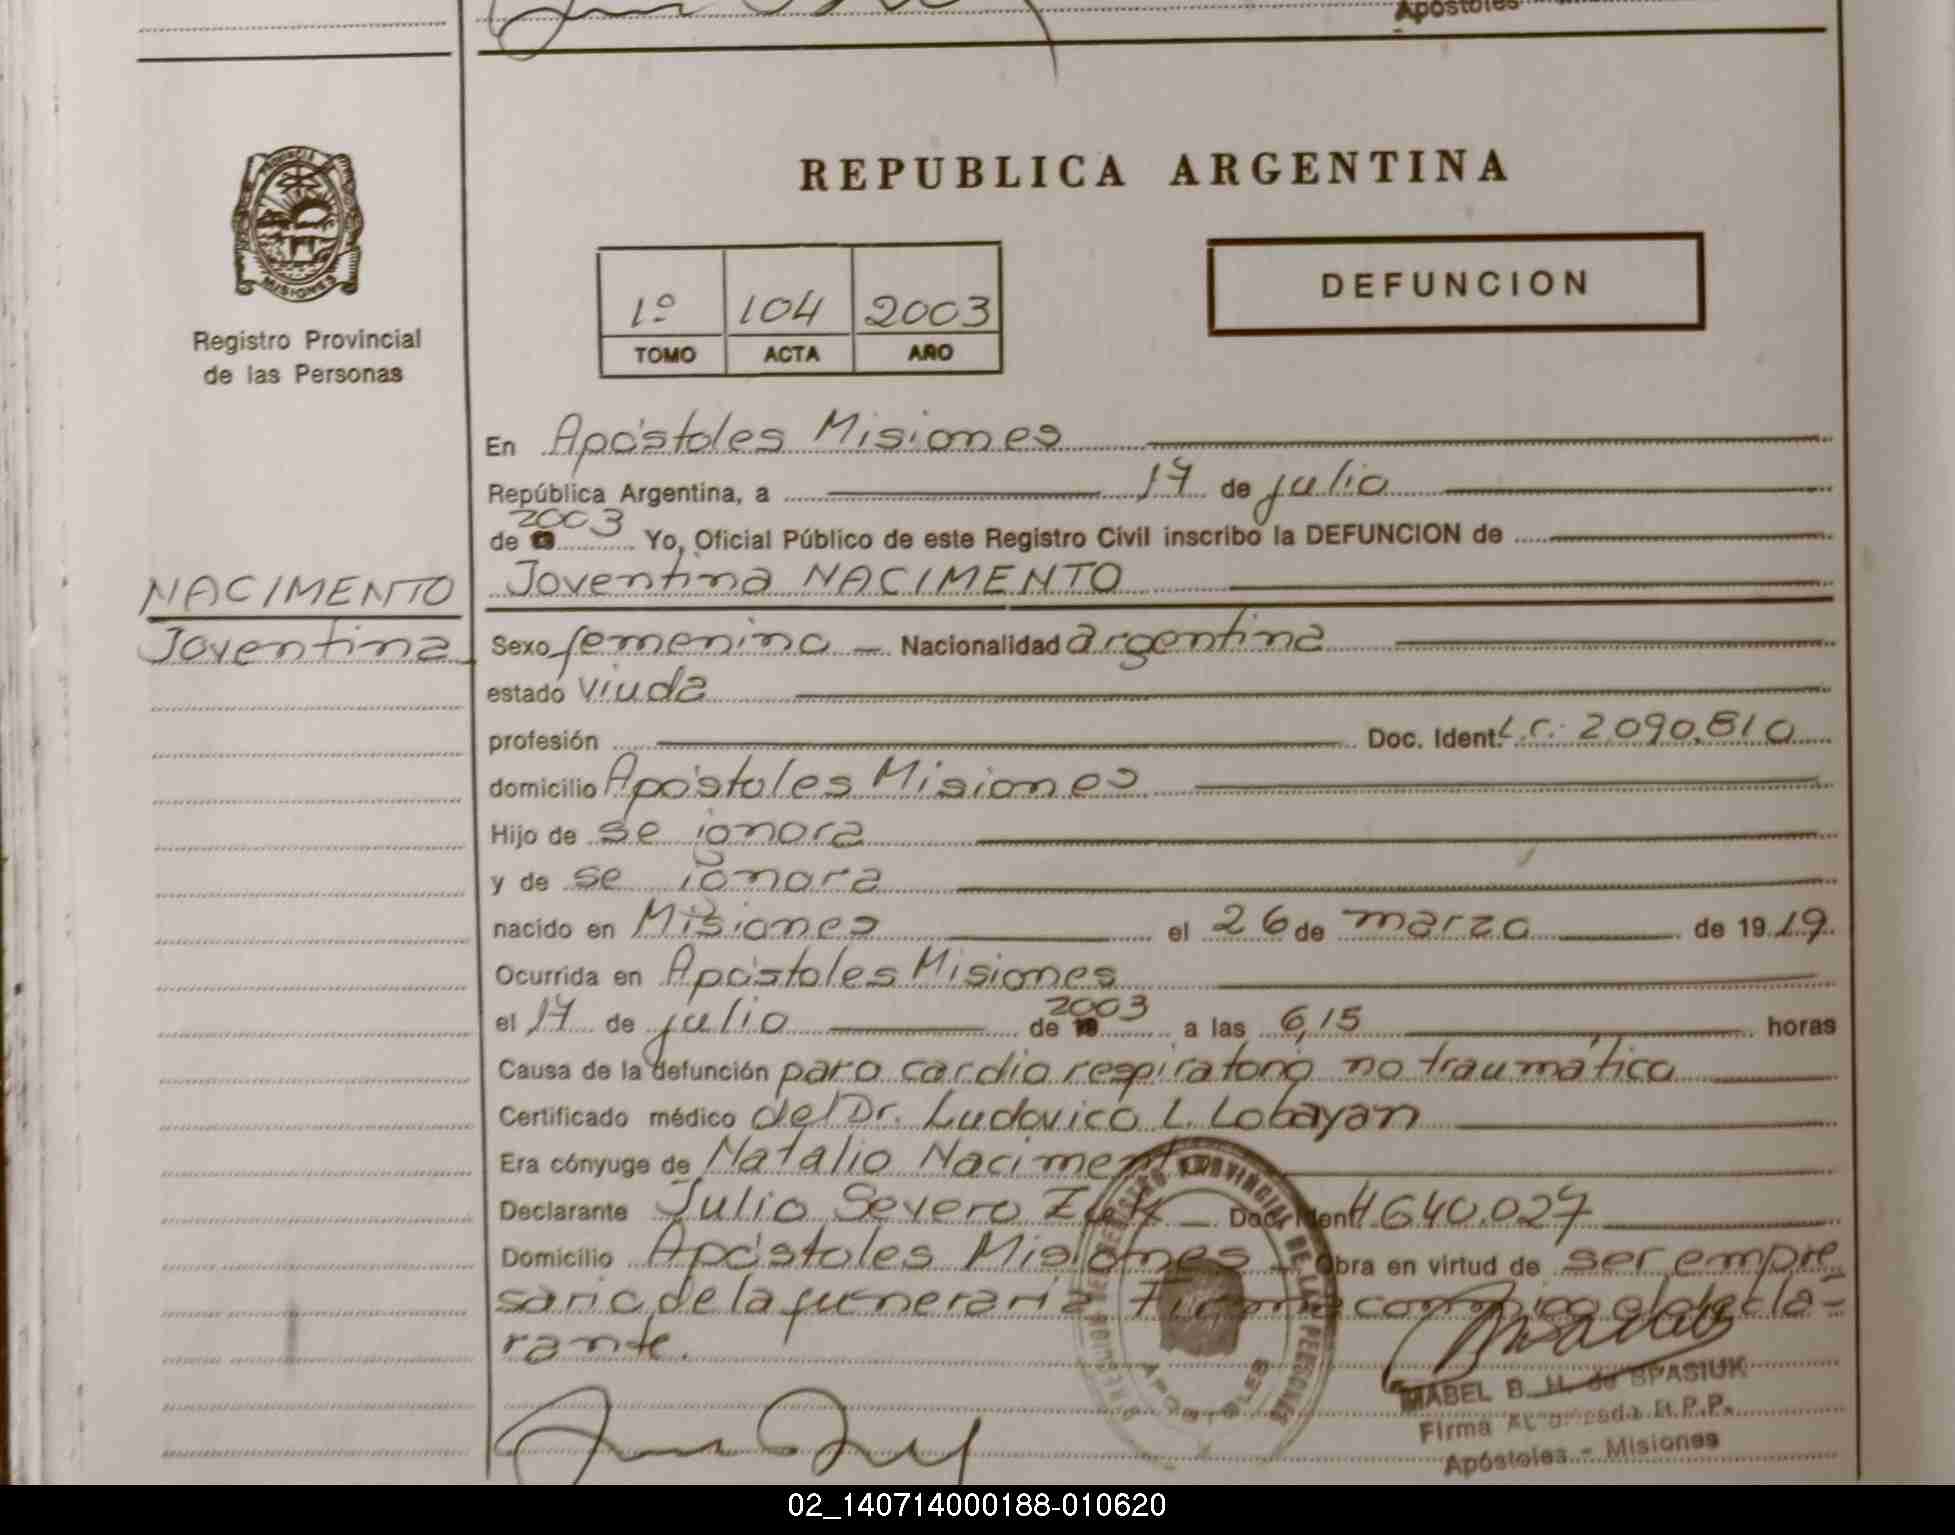 Apostoles
PROVINCIA
MISIONES
Registro Provincial
de las Personas
REPUBLICA ARGENTINA
1º 104 2003
TOMO ACTA AÑO
DEFUNCION
En Apóstoles Misiones
República Argentina, a 17 de julio
de 2003 Yo, Oficial Público de este Registro Civil inscribo la DEFUNCION de
NACIMENTO
Joventina
Joventina NACIMENTO
Sexo femenino Nacionalidad argentina
estado viuda
profesión Doc. Ident. L.C. 2.090.810
domicilio Apóstoles Misiones
Hijo de se ignora
y de se ignora
nacido en Misiones el 26 de marzo de 1919
Ocurrida en Apóstoles Misiones
el 17 de julio de 2003 a las 6,15 horas
Causa de la defunción paro cardio respiratorio no traumática
Certificado médico del Dr. Ludovico L. Lobayan
Era cónyuge de Natalio Nacimento
Declarante Julio Severo Zuk Doc. Ident. 4640.027
Domicilio Apóstoles Misiones Obra en virtud de ser empre
sario de la funeraria Firma conmigo el decla-
rante.
REGISTRO PROVINCIAL DE LAS PERSONAS
APOSTOLES
MABEL B. H. de SPASIUK
Firma R.P.P.
Apóstoles - Misiones
02_140714000188-010620